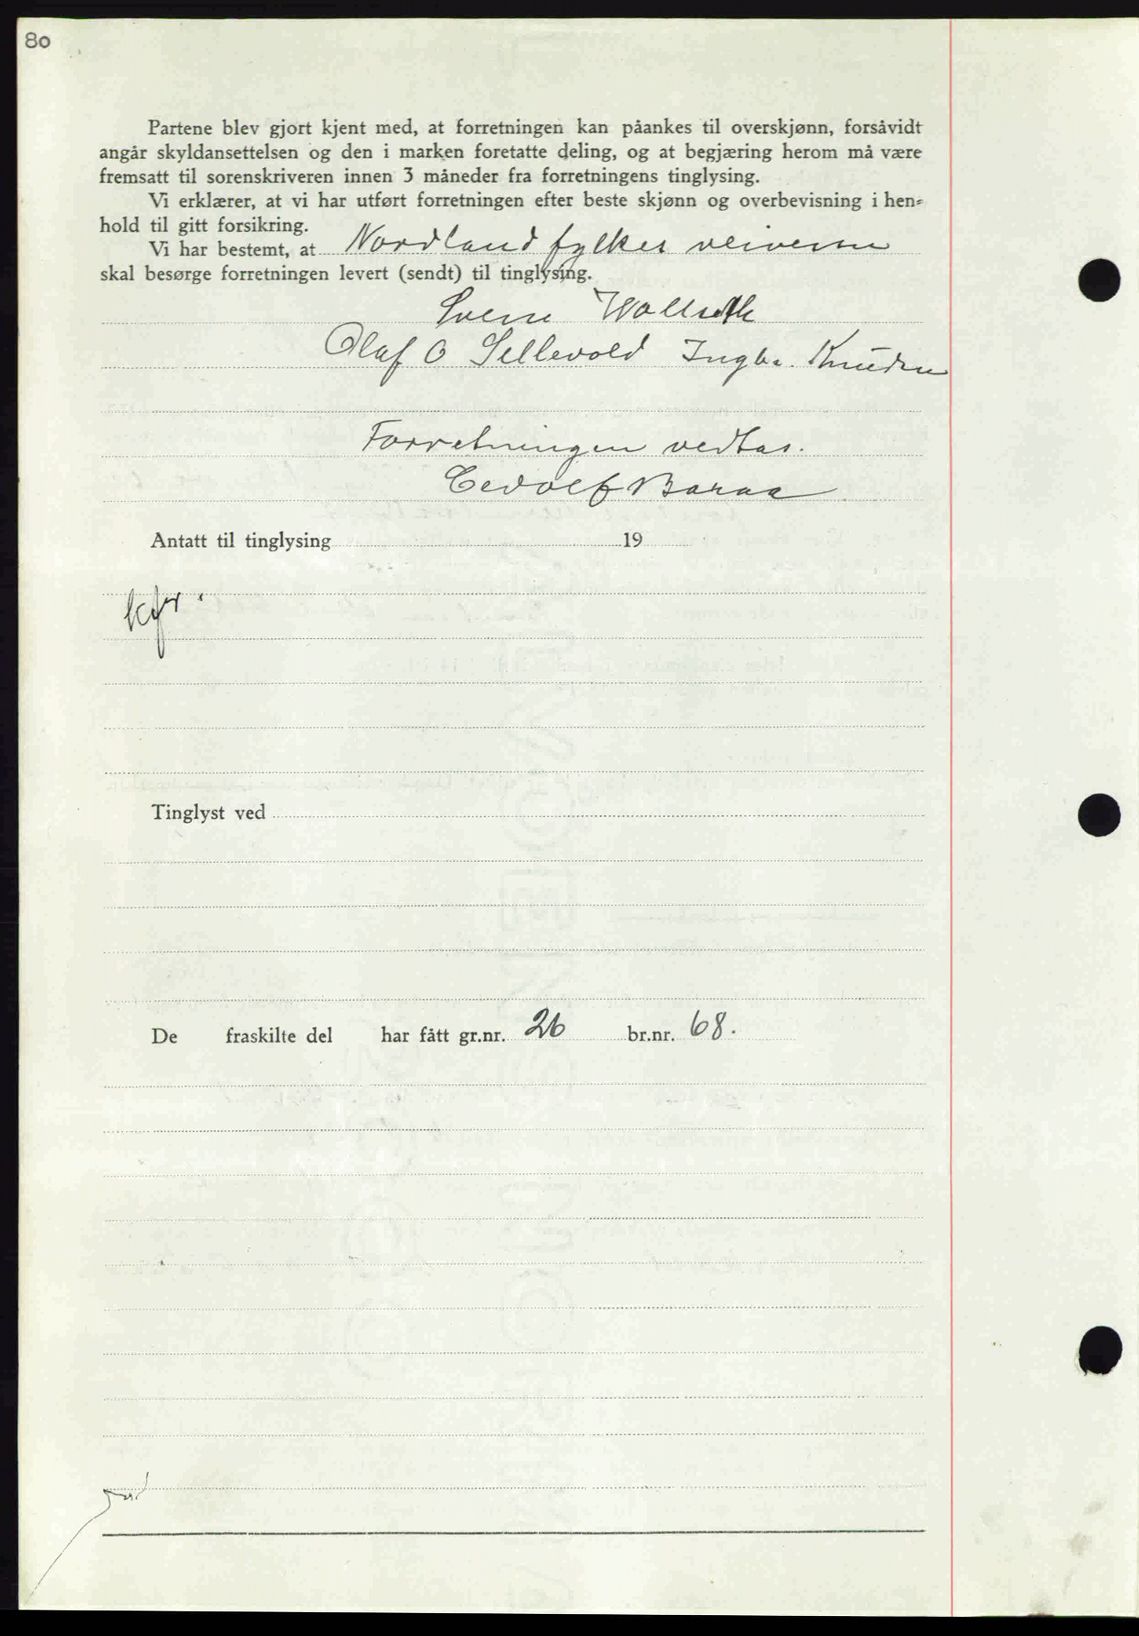 80
Partene blev gjort kjent med, at forretningen kan påankes til overskjønn, forsåvidt
angår skyldansettelsen og den i marken foretatte deling, og at begjæring herom må være
fremsatt til sorenskriveren innen 3 måneder fra forretningens tinglysing.
Vi erklærer, at vi har utført forretningen efter beste skjønn og overbevisning i hen-
hold til gitt forsikring.
Vi har bestemt, at Nordland fylkes
skal besørge forretningen levert (sendt) til tinglysing.
Olaf O Sellevold Ingbr. Knudsen
Forretningen vedtas.
Antatt til tinglysing 19
kfr.
Tinglyst ved
De fraskilte del har fått gr.nr. 26 br.nr. 68.